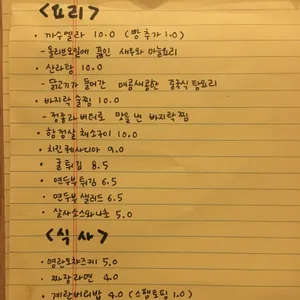 <요리>
· 까수엘라 10.0 (빵 추가 1.0)
- 올리브오일에 끓인 새우와 마늘요리
· 산라탕 10.0
- 닭고기가 들어간 매콤새콤한 중국식 탕요리
· 바지락 술찜 10.0
- 정종과 버터로 맛을 낸 바지락찜
· 항정살 채소구이 10.0
· 치킨 퀘사디아 9.0
· 굴튀김 8.5
· 연두부튀김 6.5
· 연두부샐러드 6.5
· 살사소스와나쵸 5.0
<식사>
· 명란오차즈케 5.0
· 짜장라면 4.0
· 계란버터밥 4.0 (스팸토핑 1.0)